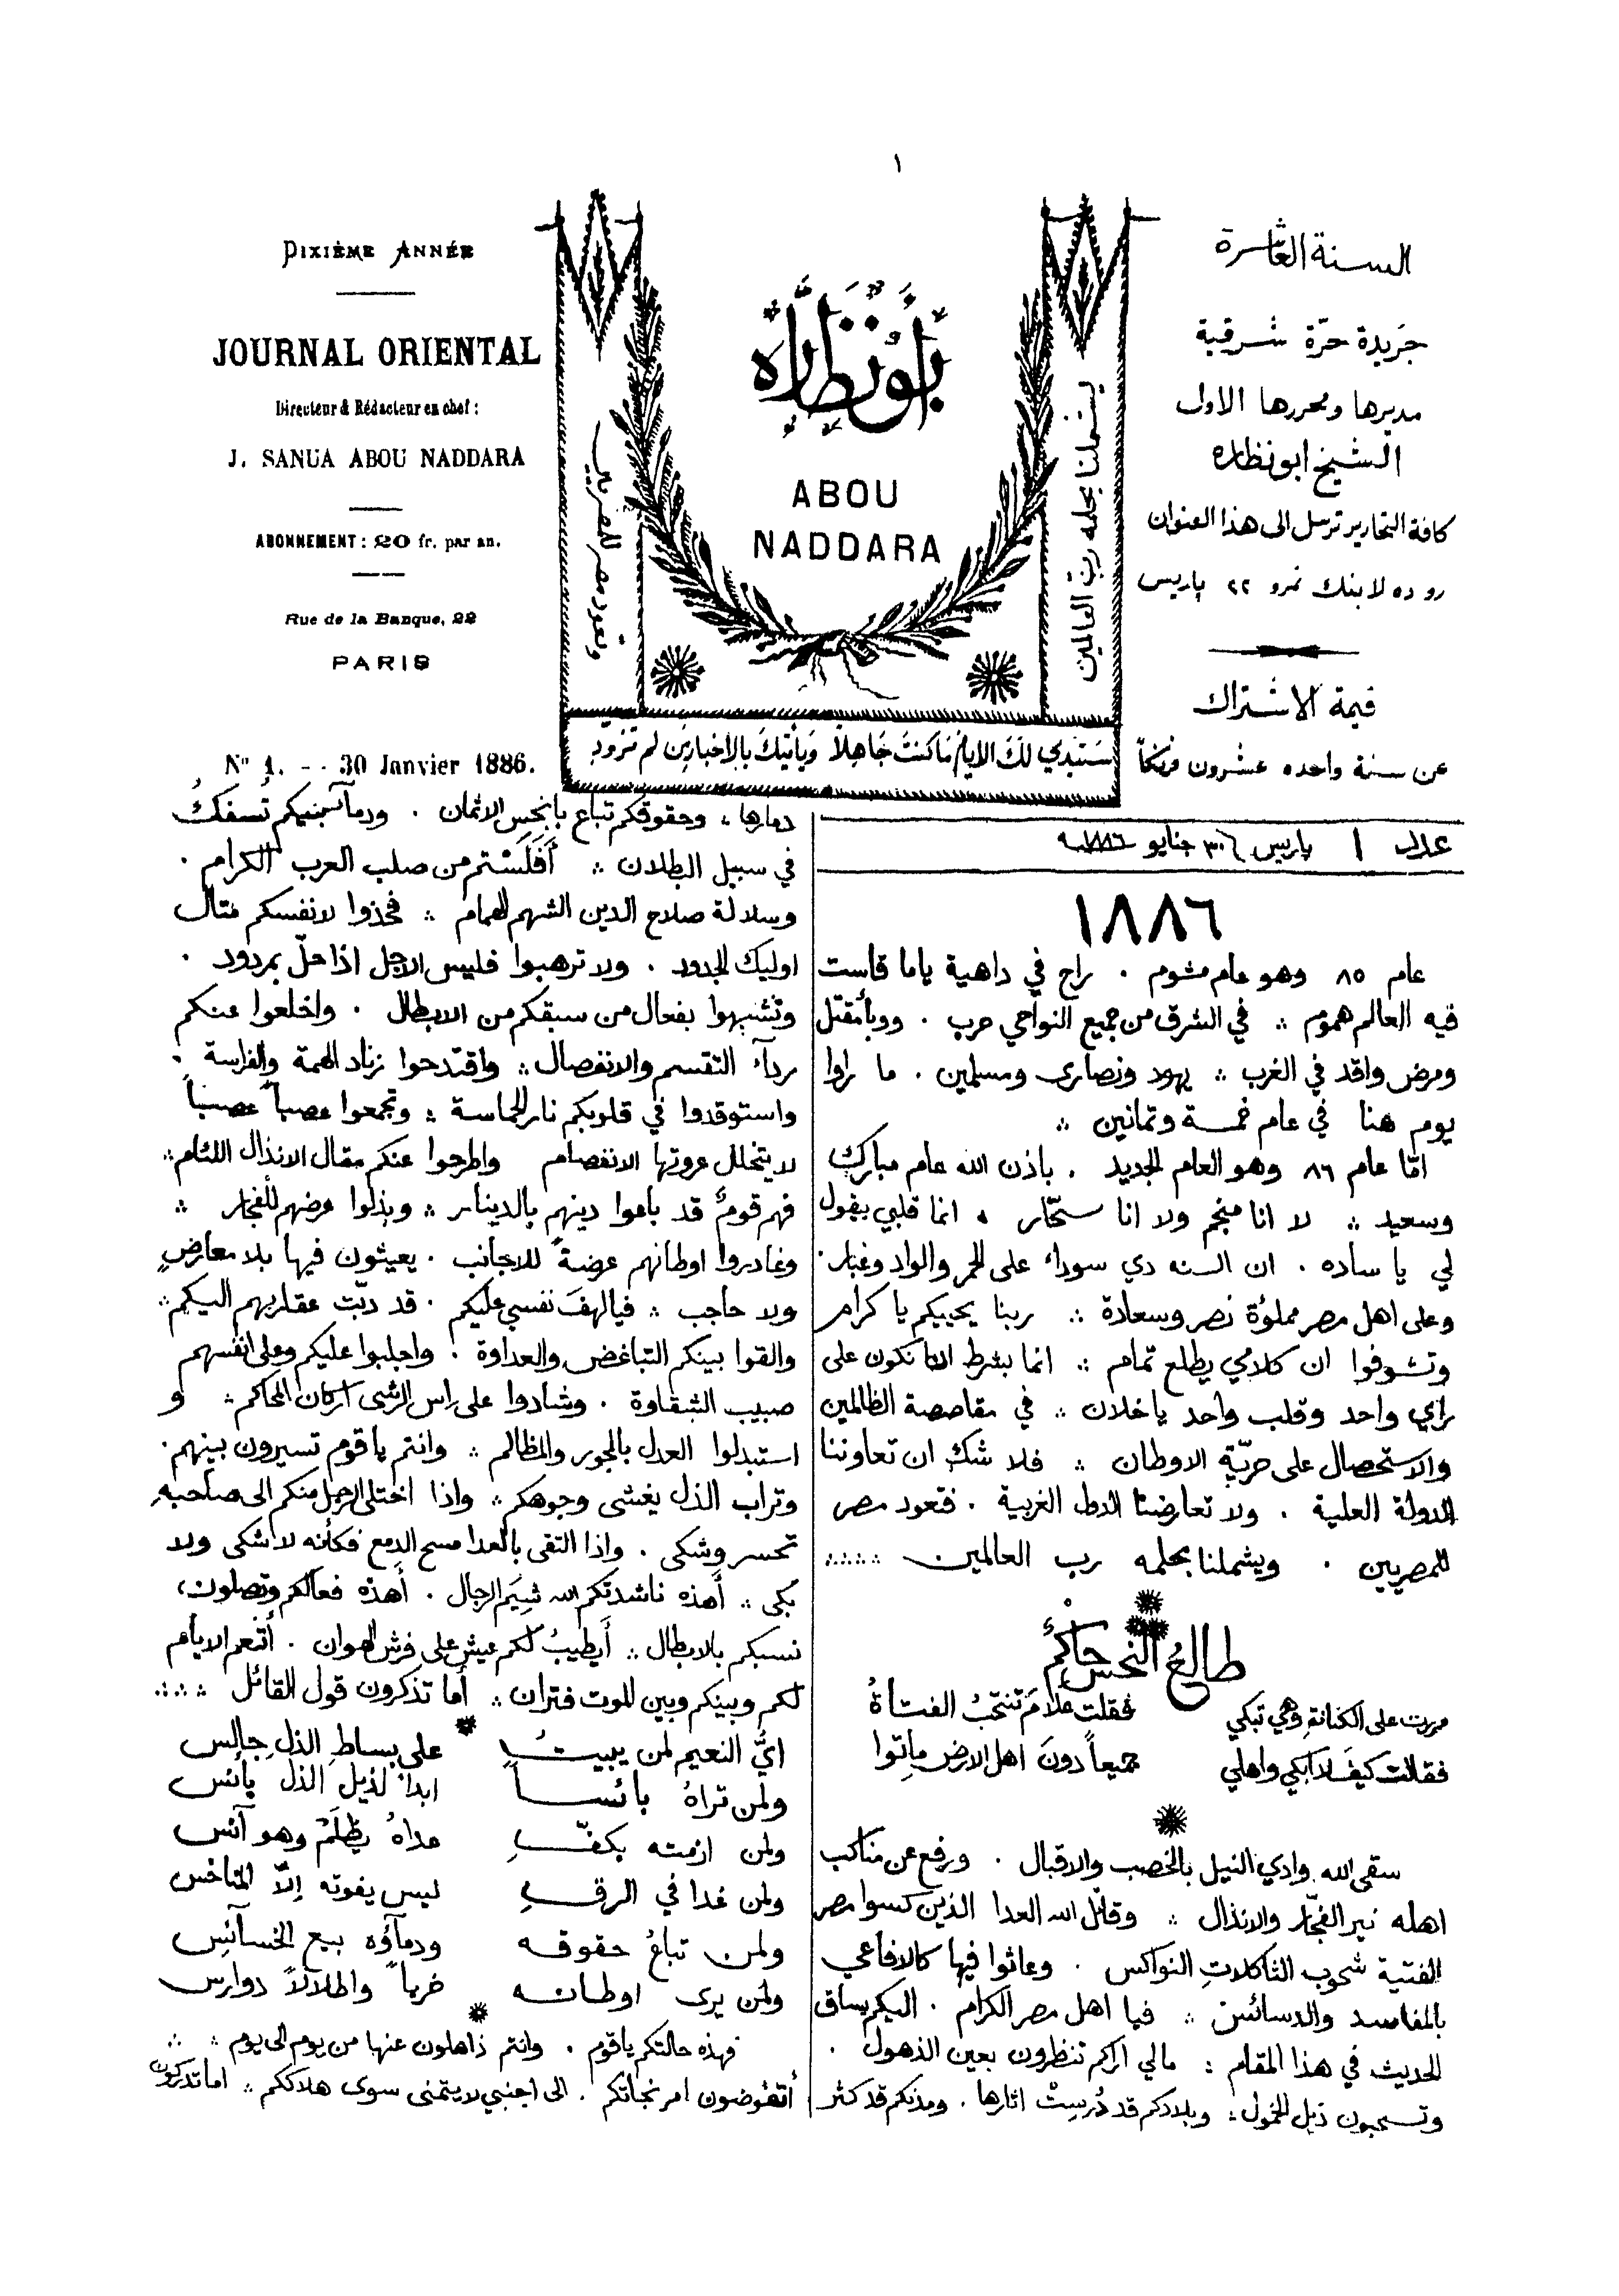 ١
DIXIÈME ANNÉE
JOURNAL ORIENTAL
Directeur & Rédacteur en chef :
J. SANUA ABOU NADDARA
ABONNEMENT : 20 fr. par an.
Rue de la Banque, 22
PARIS
Nº 1. -- 30 Janvier 1886.
أبو نظاره
ABOU
NADDARA
يشملنا بحلمه رب العالمين
وتعود مصر للمصريين
ستبدي لك الايام ما كنت جاهلا ويأتيك بالاخبار من لم تزود
السنة العاشرة
جريدة حرّة شرقية
مديرها ومحررها الاول
الشيخ ابو نظاره
كافة التحارير ترسل الى هذا العنوان
رو ده لا بنك نمرو ٢٢ پاريس
قيمة الاشتراك
عن سنة واحده عشرون فرنكاً
عدد ١ پاريس ٣٠ جنايو ١٨٨٦
١٨٨٦
عام ٨٥ وهو عام مشوم . راح في داهية ياما قاست
فيه العالم هموم ∴ في الشرق من جميع النواحي حرب . ووبأ مقتل
ومرض واقد في الغرب ∴ يهود ونصارى ومسلمين . ما راوا
يوم هنا في عام خمسة وتمانين ∴
امّا عام ٨٦ وهو العام الجديد . باذن الله عام مبارك
وسعيد ∴ لا انا منجم ولا انا سحّار . انما قلبي يقول
لي يا ساده . ان السنه دي سوداء على الحمر والواد وغبار .
وعلى اهل مصر مملوّة نصر وسعادة ∴ ربنا يحييكم يا كرام
وتشوفوا ان كلامي يطلع تمام ∴ انما بشرط اننا نكون على
راي واحد وقلب واحد يا خلان ∴ في مقاصصة الظالمين
والاستحصال على حريّة الاوطان ∴ فلا شك ان تعاوننا
الدولة العلية . ولا تعارضنا الدول الغربية . فتعود مصر
للمصريين . ويشملنا بحلمه رب العالمين ∴∴
طالعُ النحسِ حاكمٌ
مررت على الكنانة وهي تبكي فقلت علامَ تنتحبُ الفتاةُ
فقالت كيفَ لا ابكي واهلي جميعاً دونَ اهل الارض ماتوا
سقى الله وادي النيل بالخصب والاقبال . ورفع عن مناكب
اهله نير الفجّار والانذال ∴ وقاتل الله العدا الذين كسوا مصر
الفتية شحوب الثاكلات النواكس . وعاثوا فيها كالافاعي
بالمفاسد والدسائس ∴ فيا اهل مصر الكرام . اليكم يساق
الحديث في هذا المقام : مالي اراكم تنظرون بعين الذهول .
وتسحبون ذيل الخمول ∴ وبلادكم قد دُرست اثارها . ومدنكم قد كثر
دمارها ∴ وحقوقكم تباع بابخس الاثمان . ودمآ بنيكم تُسفكُ
في سبيل البطلان ∴ أفلستم من صلب العرب الكرام .
وسلالة صلاح الدين الشهم الهمام ∴ فخذوا لانفسكم مثال
اوليك الجدود . ولا ترهبوا فليس الاجل اذا حلّ بمردود .
وتشبهوا بفعال من سبقكم من الابطال . واخلعوا عنكم
ردآء التقسم والانفصال ∴ واقتدحوا زناد الهمة والفراسة .
واستوقدوا في قلوبكم نار الحماسة ∴ وتجمعوا عصباً عصباً
لا يتخلل عروتها الانفصام واطرحوا عنكم مقال الانذال اللئام ∴
فهم قومٌ قد باعوا دينهم بالدينار ∴ وبذلوا عرضهم للفجار ∴
وغادروا اوطانهم عرضةً للاجانب . يعيثون فيها بلا معارضٍ
ولا حاجب ∴ فيا لهفَ نفسي عليكم . قد دبّت عقاربهم اليكم ∴
والقوا بينكم التباغض والعداوة . واجلبوا عليكم وعلى انفسهم
صبيب الشقاوة . وشادوا على راس الرشى اركان المحاكم ∴ و
استبدلوا العدل بالجور والمظالم ∴ وانتم يا قوم تسيرون بينهم .
وتراب الذل يغشى وجوهكم ∴ واذا اختلى الرجل منكم الى صاحبهِ
تحسر وشكى . واذا التقى بالعدا مسح الدمع فكأنه لا شكى ولا
بكى ∴ أهذه ناشدتكم الله شيَم الرجال . أهذه فعالكم وتصلون
نسبكم بالابطال ∴ أيطيبُ لكم عيش على فرش الهوان . أتنعم الايام
لكم وبينكم وبين الموت فتران ∴ أما تذكرون قول القائل ∴∴
ايُّ النعيم لمن يبيتُ على بساطِ الذلِ جالس
ولمن تراهُ بائساً ابداً لذيل الذل بائس
ولمن ازمته بكفّ عداهُ يظلَمْ وهو آنس
ولمن غدا في الرق ليس يفوته إلّا المناخس
ولمن تباعُ حقوقه ودمآؤه بيع الخسآئس
ولمن يرى اوطانه خرباً واطلالاً دوارس
فهذه حالتكم يا قوم . وانتم ذاهلون عنها من يوم الى يوم ∴
أتفوضون امر نجاتكم . الى اجنبي لا يتمنى سوى هلاككم ∴ اما تدركون